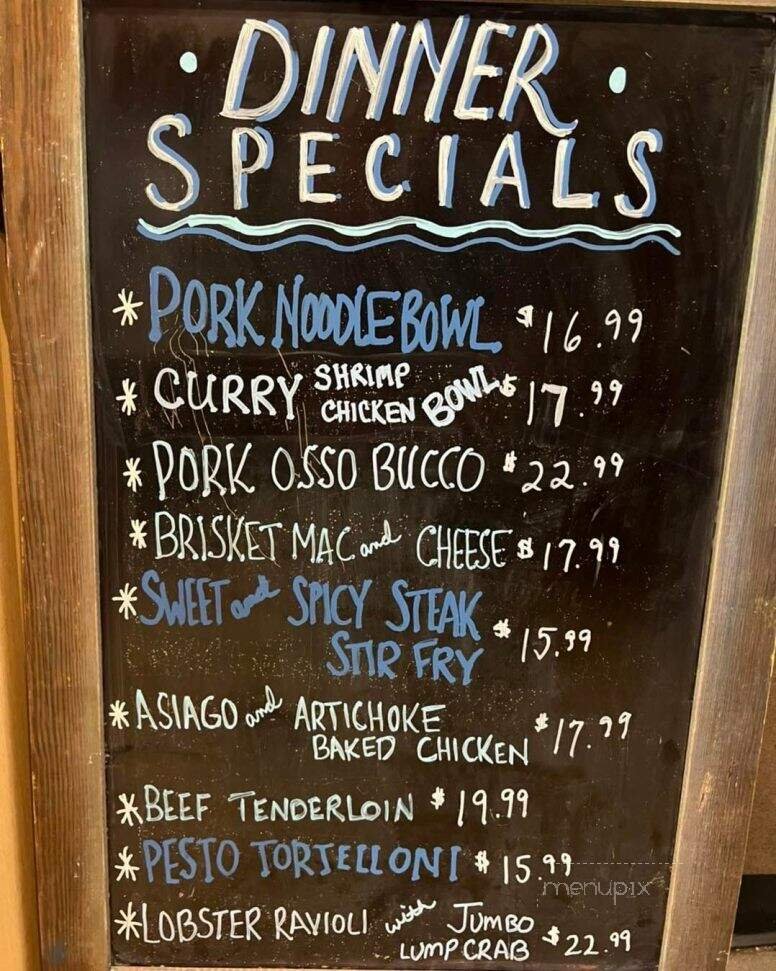 • DINNER •
SPECIALS
* PORK NOODLE BOWL $16.99
* CURRY SHRIMP CHICKEN BOWL $17.99
* PORK OSSO BUCCO $22.99
* BRISKET MAC and CHEESE $17.99
* SWEET and SPICY STEAK
STIR FRY $15.99
* ASIAGO and ARTICHOKE
BAKED CHICKEN $17.99
* BEEF TENDERLOIN $19.99
* PESTO TORTELLONI $15.99
menupix
* LOBSTER RAVIOLI with JUMBO
LUMP CRAB $22.99